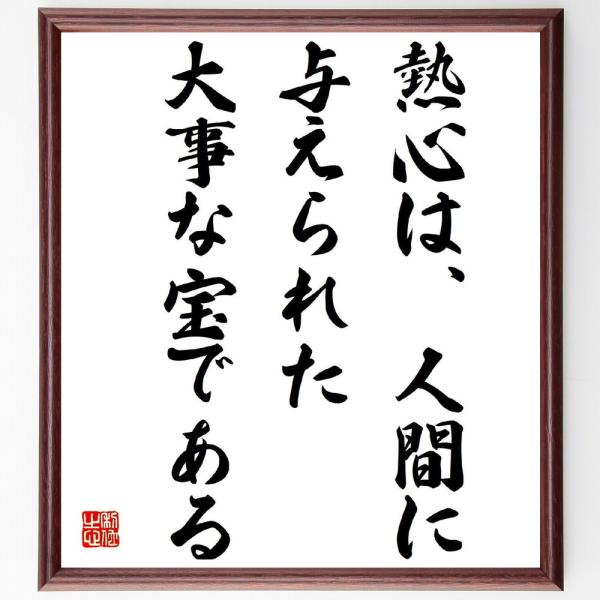 熱心は、人間に
与えられた
大事な宝である